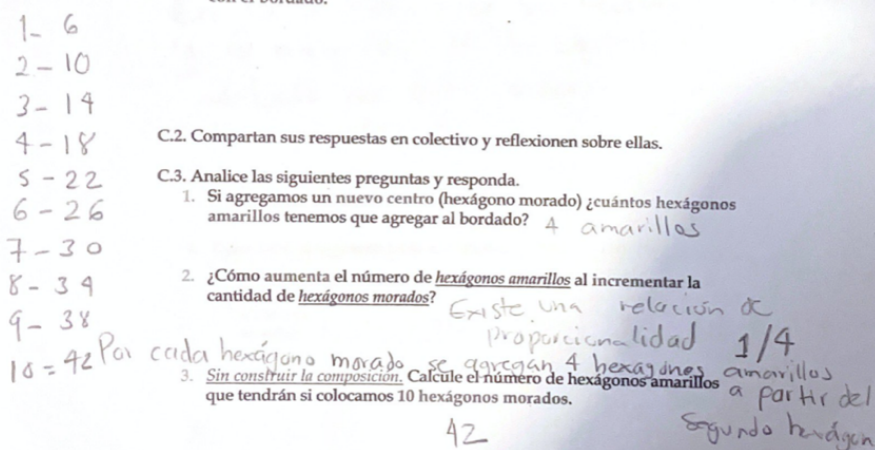 1- 6
2- 10
3- 14
4- 18
C.2. Compartan sus respuestas en colectivo y reflexionen sobre ellas.
5- 22
C.3. Analice las siguientes preguntas y responda.
6- 26
1. Si agregamos un nuevo centro (hexágono morado) ¿cuántos hexágonos
amarillos tenemos que agregar al bordado? 4 amarillos
7- 30
8- 34
2. ¿Cómo aumenta el número de hexágonos amarillos al incrementar la
cantidad de hexágonos morados? Existe una relación de
9- 38
proporcionalidad 1/4
10 = 42 Por cada hexágono morado se agregan 4 hexágonos amarillos
3. Sin construir la composición. Calcule el número de hexágonos amarillos
a partir del
que tendrán si colocamos 10 hexágonos morados.
segundo hexágon
42